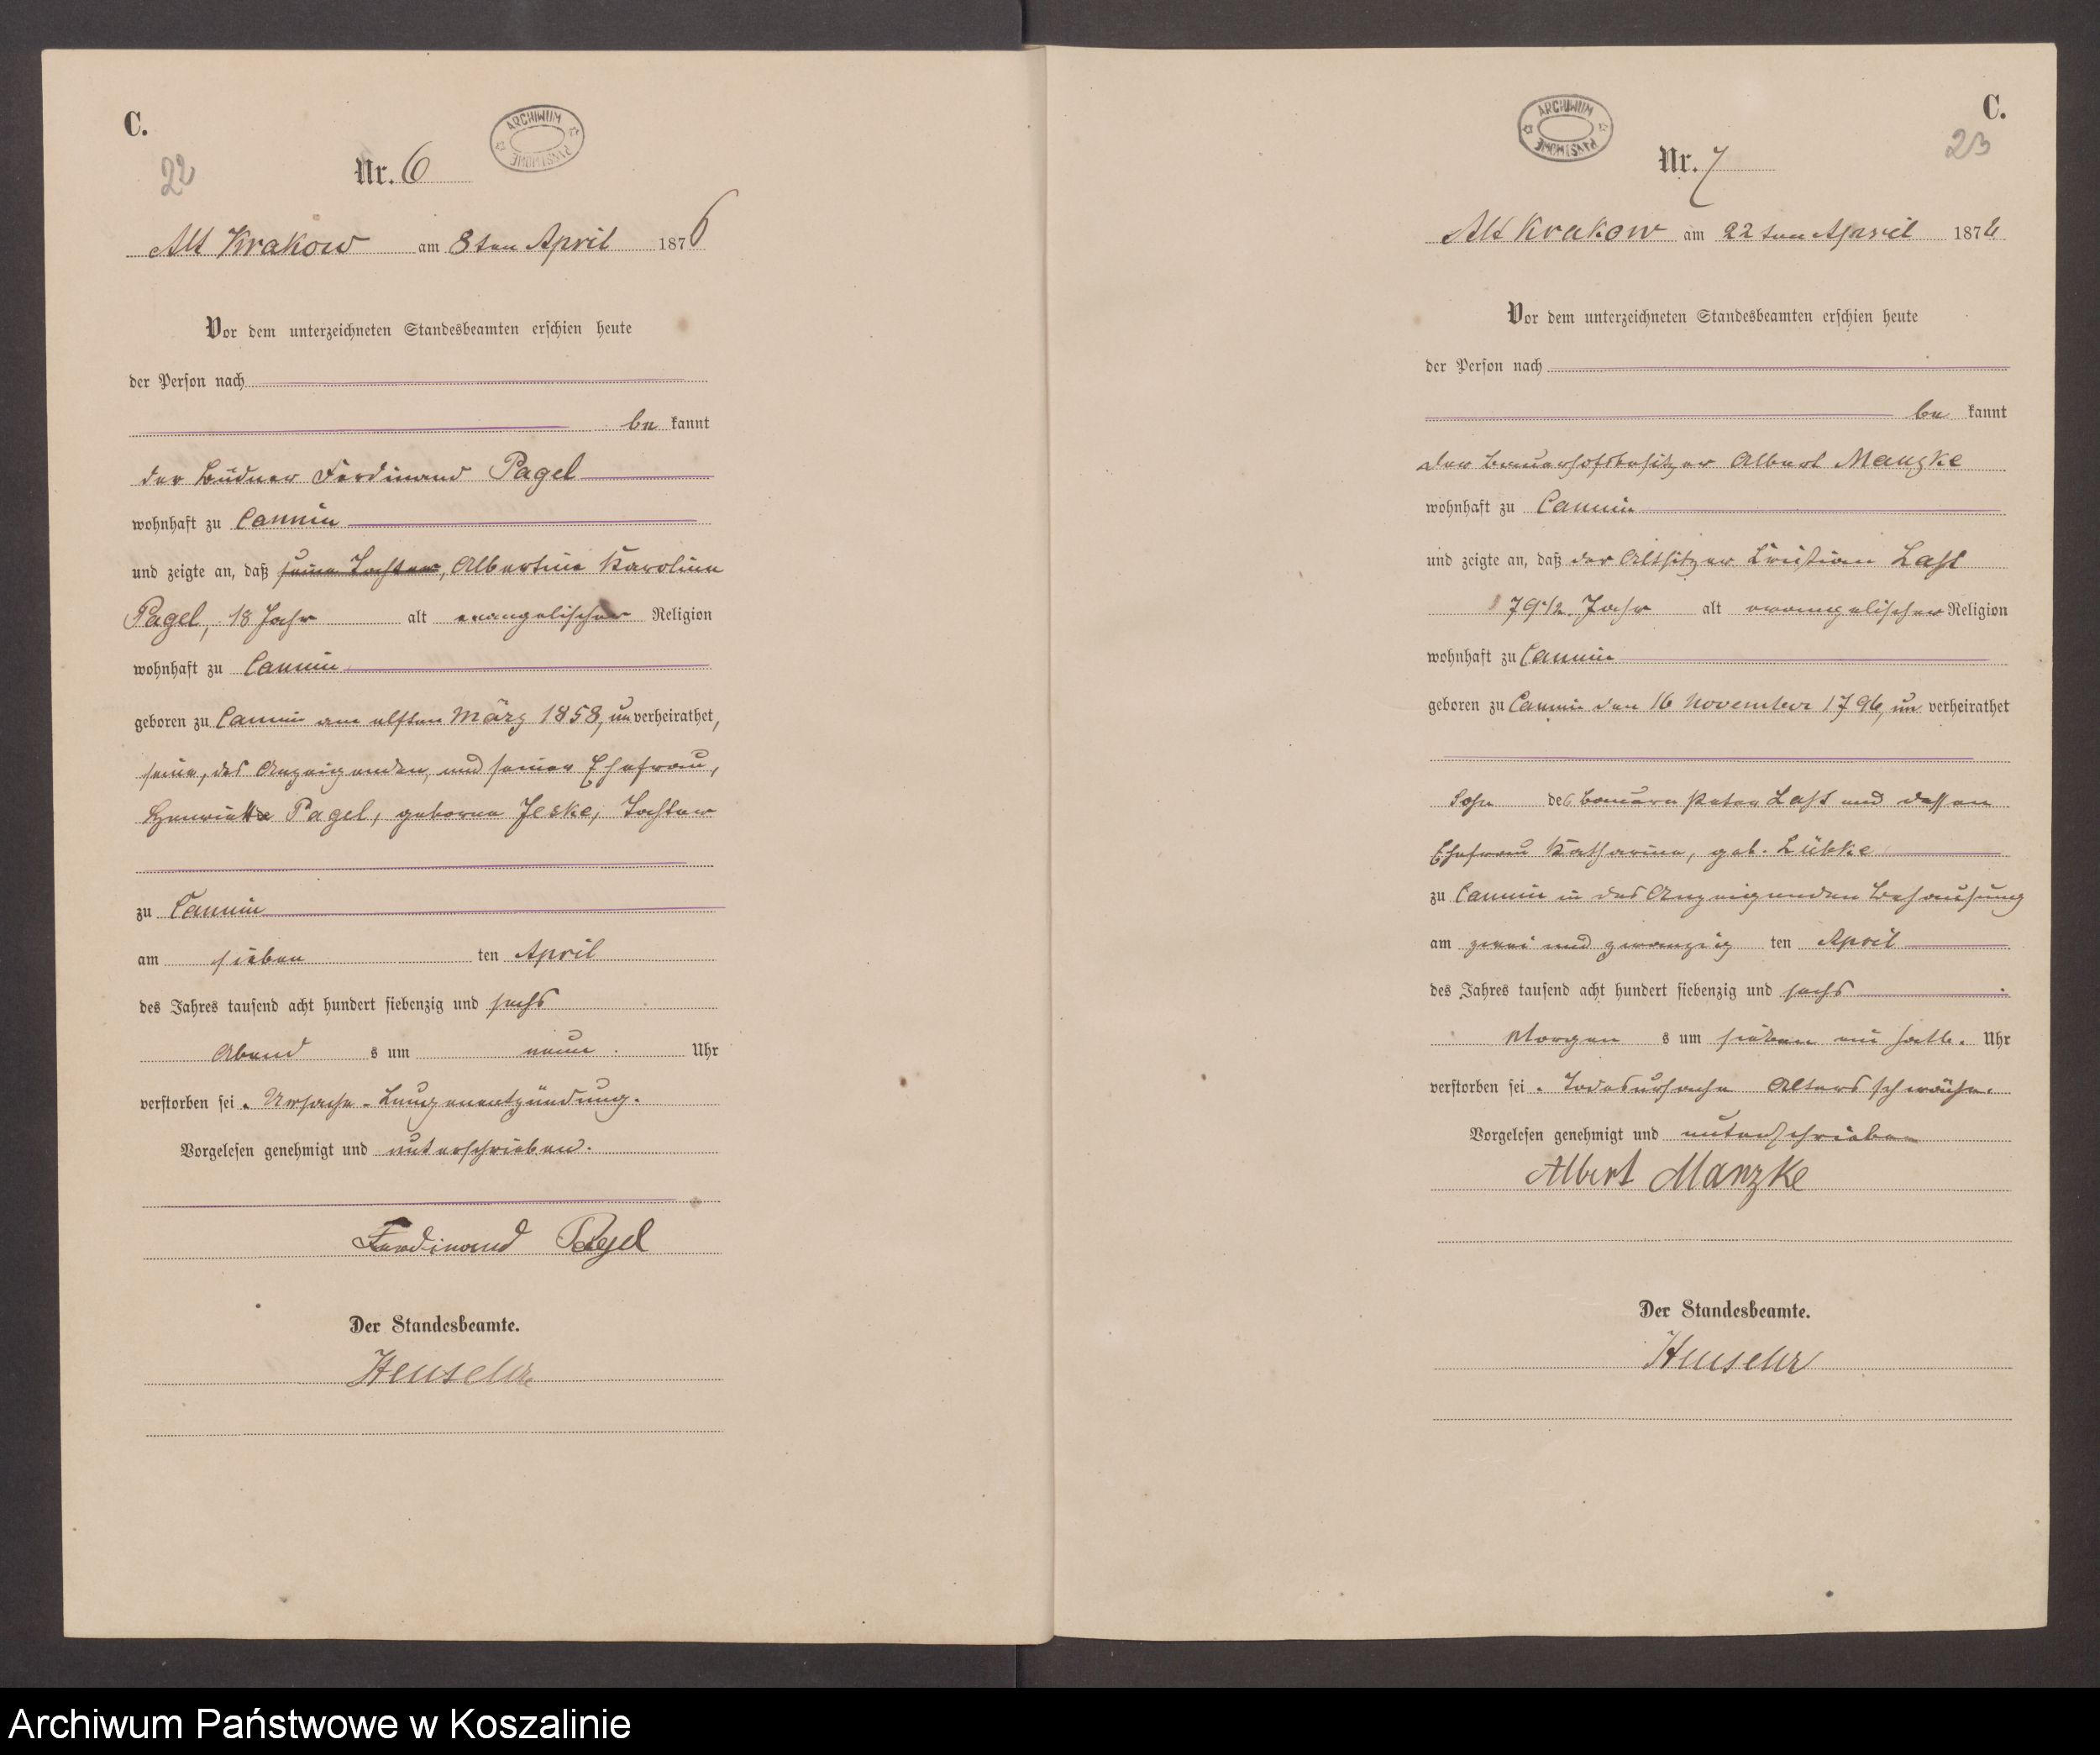 C.
22
Nr. 6
ARCHIWUM PAŃSTWOWE
Alt Krakow am 8ten April 1876
Vor dem unterzeichneten Standesbeamten erschien heute
der Person nach
be kannt
der Büdner Ferdinand Pagel
wohnhaft zu Cannin
und zeigte an, daß seine Tochter, Albertine Karoline
Pagel, 18 Jahr alt evangelischer Religion
wohnhaft zu Cannin
geboren zu Cannin am elften März 1858, un verheirathet,
seine, des Anzeigenden, und seiner Ehefrau,
Henriette Pagel, geborne Jeske, Tochter
zu Cannin
am sieben ten April
des Jahres tausend acht hundert siebenzig und sechs
Abend s um neun Uhr
verstorben sei. Ursache - Lungenentzündung.
Vorgelesen genehmigt und unterschrieben.
Ferdinand Pagel
Der Standesbeamte.
C.
23
Nr. 7
ARCHIWUM PAŃSTWOWE
Alt Krakow am 22ten April 1876
Vor dem unterzeichneten Standesbeamten erschien heute
der Person nach
be kannt
der Bauerhofsbesitzer Albert Manzke
wohnhaft zu Cannin
und zeigte an, daß der Altsitzer Kristian Last
79 1/2 Jahr alt evangelischer Religion
wohnhaft zu Cannin
geboren zu Cannin den 16 November 1796, un verheirathet
Sohn des Bauern Peter Last und dessen
Ehefrau Katharine, geb. Lübke
zu Cannin in des Anzeigenden Behausung
am zwei und zwanzig ten April
des Jahres tausend acht hundert siebenzig und sechs
Morgen s um sieben ein halb. Uhr
verstorben sei. Todesursache Altersschwäche.
Vorgelesen genehmigt und unterschrieben
Albert Manzke
Der Standesbeamte.
Archiwum Państwowe w Koszalinie